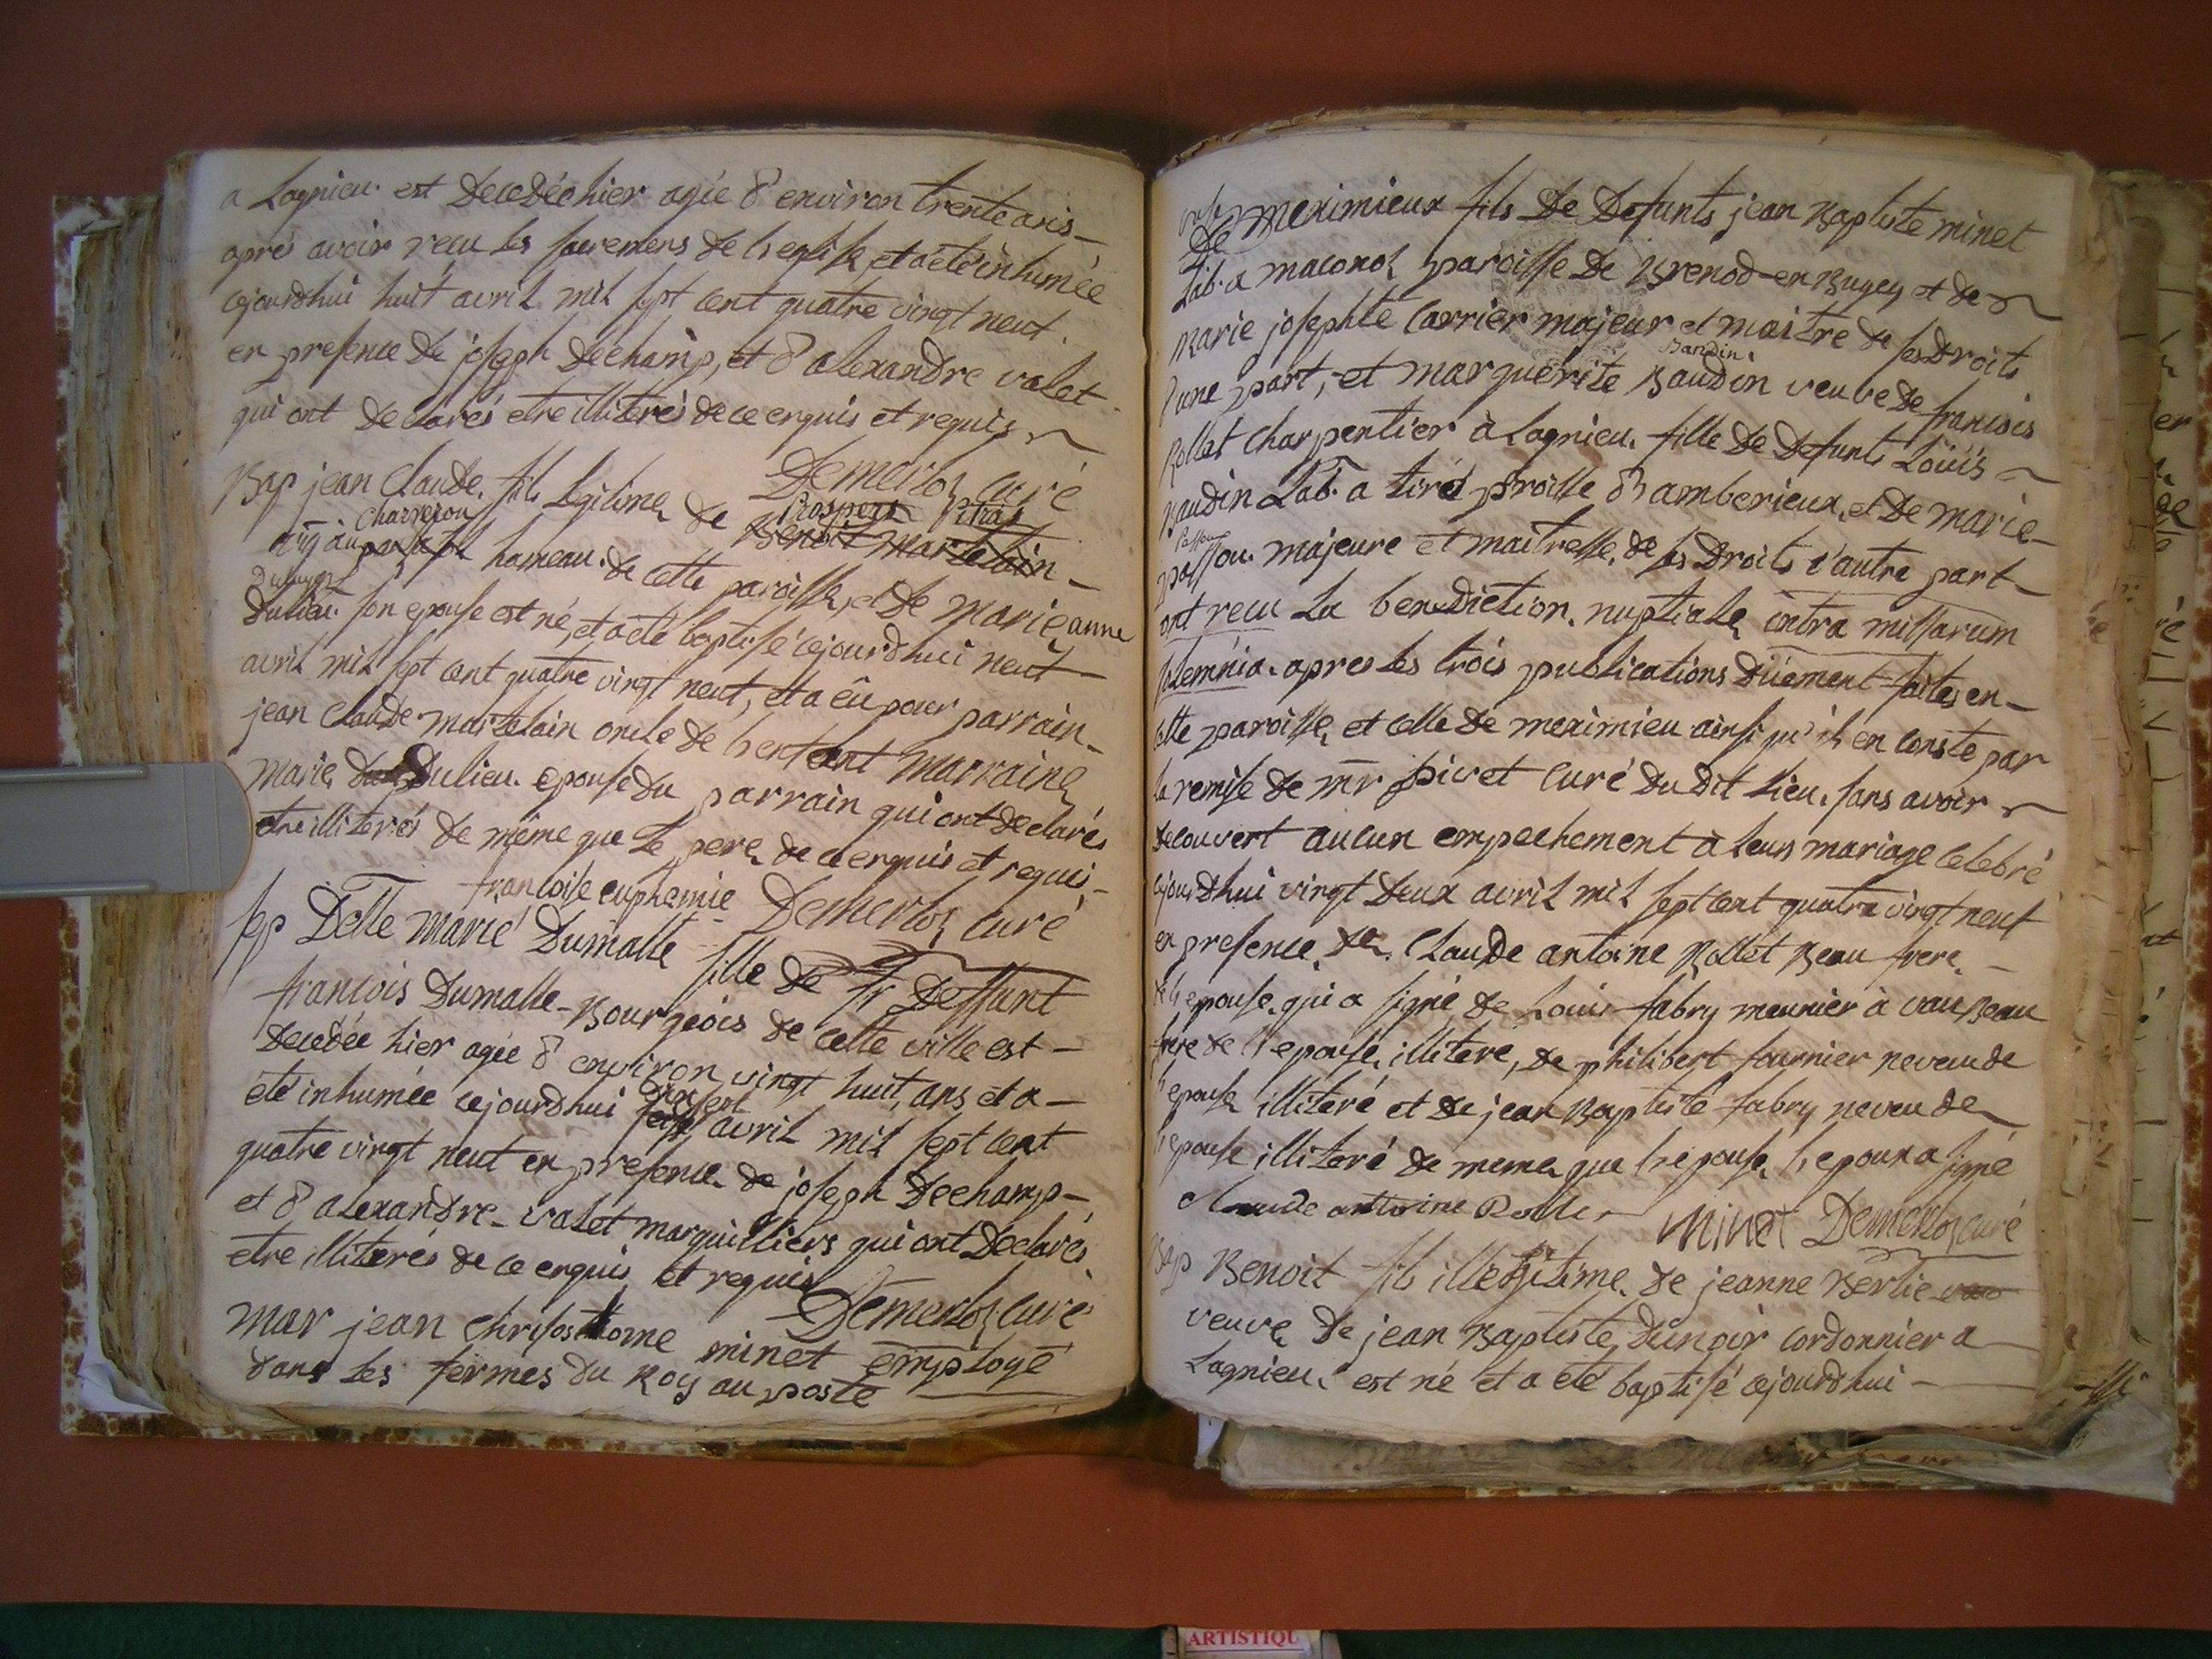 a Lagnieu est Decedée hier agée d'environ trente ans
apres avoir recu les sacremens de l'eglise et a eté inhumée
cejourdhui huit avril mil sept cent quatre vingt neuf
en presence de joseph Dechamp, et d'alexandre valet
qui ont declarés etre illiterés de ce enquis et requis
Demerloz curé
Bap jean Claude fils Legitime de Prospert Pitras
Benoit Martelain
charveyron
hameau de cette paroisse, et de marie anne
Dulieu son epouse est né, et a eté baptisé cejourdhui neuf
avril mil sept cent quatre vingt neuf, et a eû pour parrain
jean Claude Martelain oncle de l'enfant marraine
marie Dulieu epouse du parrain qui ont declarés
etre illiterés de même que le pere de ce enquis et requis
Demerloz curé
francoise euphemie
sep Delle Marie Dumalle fille de Sr Deffunt
francois Dumalle Bourgeois de cette ville est
decedée hier agée d'environ vingt huit ans et a
eté inhumée cejourdhui avril mil sept cent
quatre vingt neuf en presence de joseph Dechamp
et d'alexandre valet marguilliers qui ont Declarés
etre illiterés de ce enquis et requis
Demerloz curé
Mar jean chrisostome minet employé
dans les fermes du Roy au poste
De meximieux fils de Defunts jean Baptiste minet
Lab. a maconod paroisse de Brenod en Bugey et de
marie josephte Carrier majeur et maitre de ses Droits
d'une part, et marguerite Baudin veuve de francois
Bandin
Rollet charpentier à Lagnieu fille de defunts Loüis
Baudin Lab. a tiré proisse d'amberieux, et de marie
Passou
passou majeure et maitresse de ses Droits d'autre part
ont recu La benediction nuptiale intra missarum
solemnia apres les trois publications düement faites en
cette paroisse, et celle de meximieu ainsi qu'il en conste par
la remise de mr pivet curé du dit Lieu, sans avoir
decouvert aucun empechement à leur mariage celebré
cejourdhui vingt deux avril mil sept cent quatre vingt neuf
en presence de Claude antoine Rollet Beau frere
de l'epouse qui a signé de Louis fabry meunier à vau Beau
frere de l'epouse illiteré, de philibert fournier neveu de
l'epouse illiteré et de jean Baptiste fabry neveu de
l'epouse illiteré de meme que l'epouse, l'epoux a signé
Claude antoine Rollet Minet Demerloz curé
Bap Benoit fils illegitime de jeanne Berlie
veuve de jean Baptiste dunoir cordonnier a
Lagnieu est né et a eté baptisé cejourdhui
ARTISTIQU